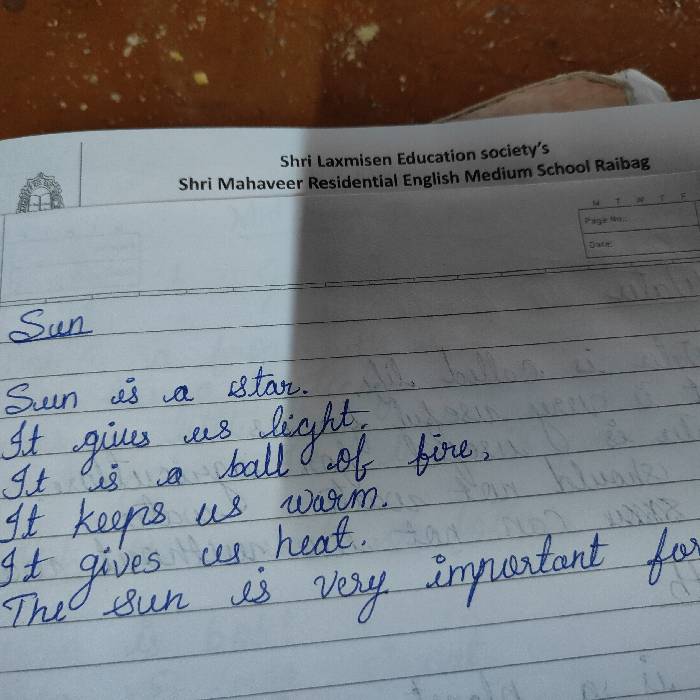 Shri Laxmisen Education society's
Shri Mahaveer Residential English Medium School Raibag
M T W T F
Page No.:
Date:
Sun
Sun is a star.
It gives us light.
It is a ball of fire,
It keeps us warm.
It gives us heat.
The sun is very important for